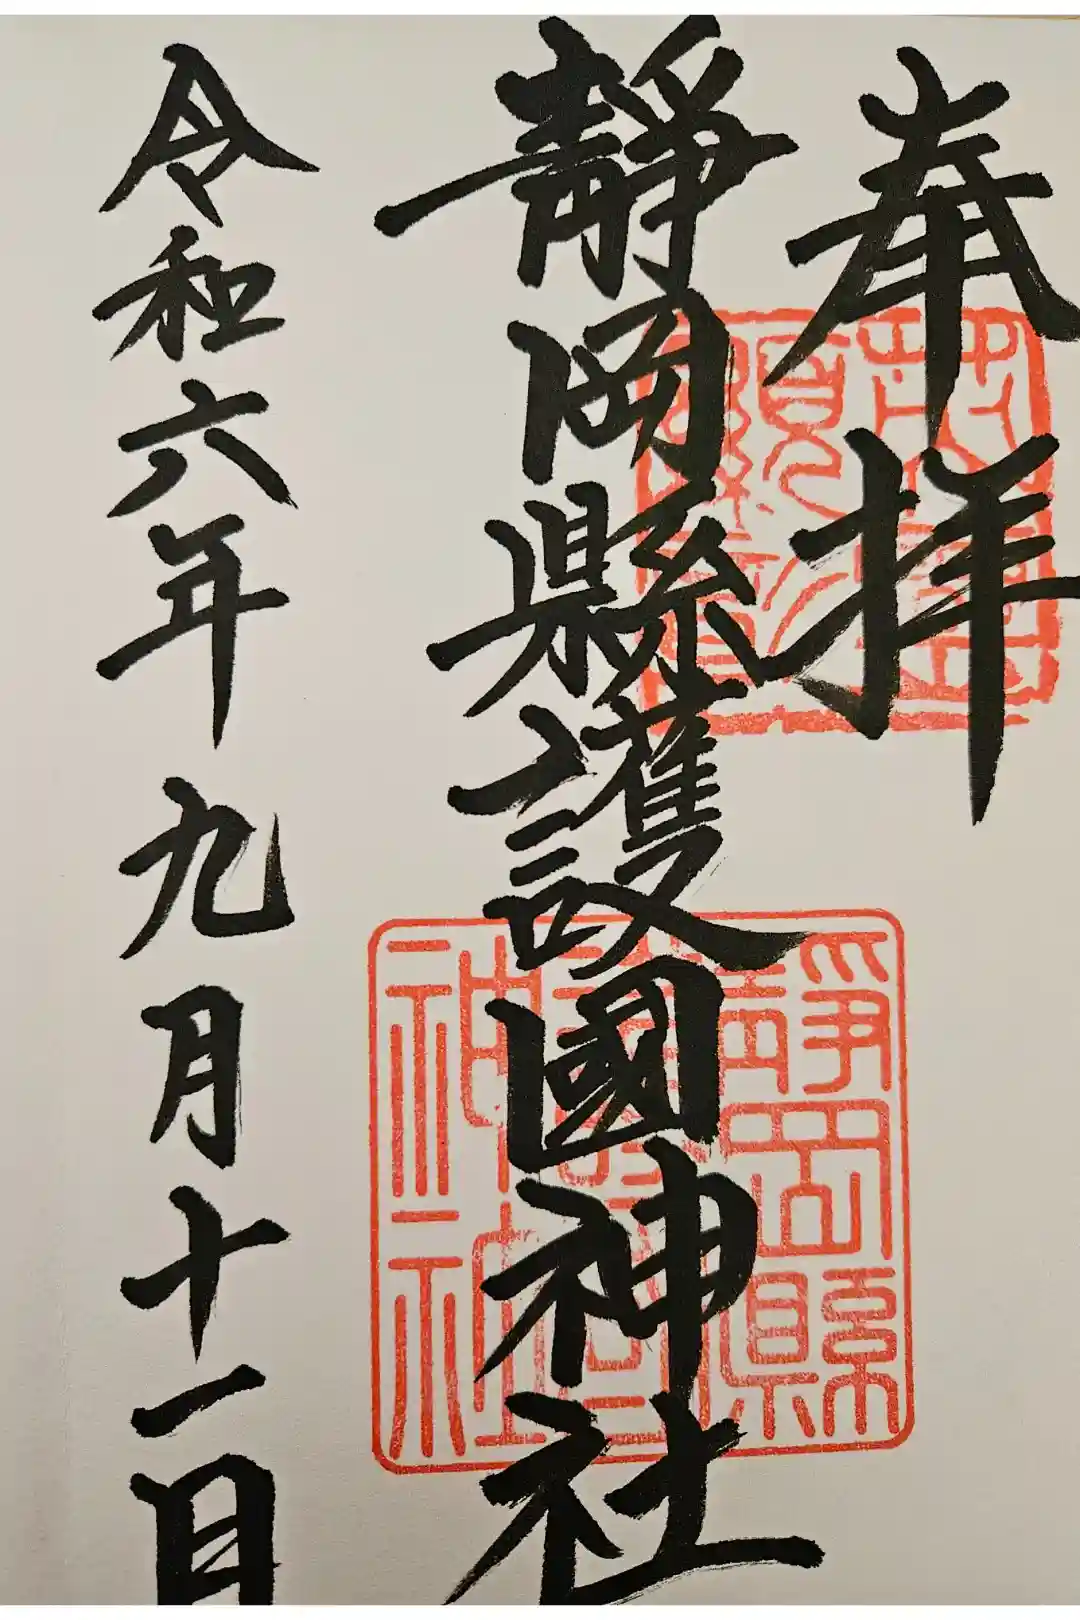 奉拝
靜岡縣護國神社
令和六年九月十一日
靜岡縣護國神社